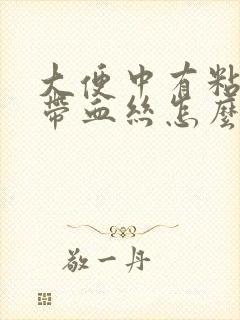 大便中有粘
带血丝怎麽
敬一丹